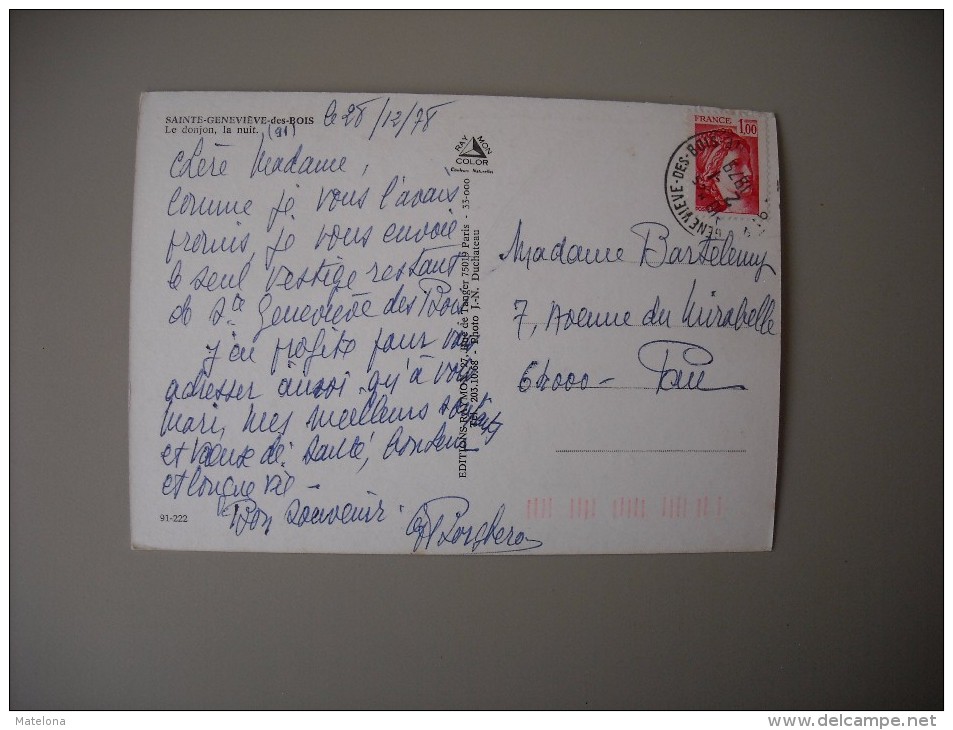 SAINTE-GENEVIÈVE-des-BOIS
Le donjon, la nuit.
(91)
le 28/12/78
RAYMON
COLOR
Couleurs Naturelles
Chère Madame,
comme je vous l'avais
promis, je vous envoie
le seul vestige restant
de Ste Geneviève des Bois
J'en profite pour vous
adresser ainsi qu'à votre
mari, mes meilleurs souhaits
et vœux de santé, bonheur
et longue vie -
Bon souvenir
91-222
EDITIONS RAYMON - 27, Rue de Tanger 75019 Paris - 33-000
Tél. 203.10.68 - Photo J.-N. Duchateau
FRANCE 1,00
GENEVIEVE-DES-BOIS
Madame Bartelemy
7, Avenue du Mirabelle
64000 - Pau
Matelona
http://matelona.delcampe.net